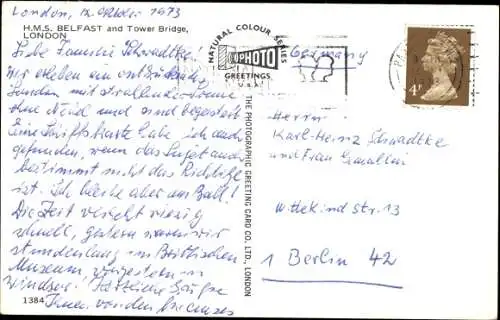 London, 12. Oktober 1973
H.M.S. BELFAST and Tower Bridge,
LONDON
Liebe Familie Schwadtke!
Wir erleben ein
London mit strahlender Sonne
ohne Neid und sind begeistert
Eine Schiffskarte habe ich auch
gefunden, wenn das Sujet auch
bestimmt nicht das Richtige
ist. Ich bleibe aber am Ball!
Die Zeit vergeht riesig
schnell, gestern waren wir
stundenlang im Britischen
Museum, vorgestern in
Windsor! Herzliche Grüße
1384 Ihnen von den
NATURAL COLOUR SERIES
PHOTO
GREETINGS
THE PHOTOGRAPHIC GREETING CARD CO., LTD., LONDON
Germany
4P
Herrn
Karl-Heinz Schwadtke
und Frau Gemahlin
Wittekindstr. 13
1 Berlin 42